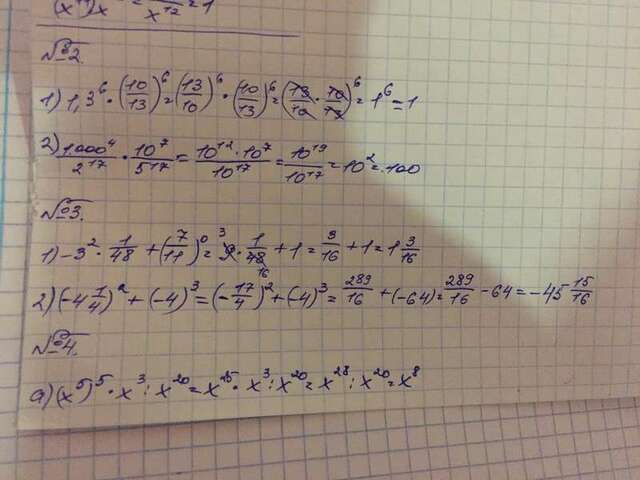 №82
1) 1,3⁶ · (10/13)⁶ = (13/10)⁶ · (10/13)⁶ = (13/10 · 10/13)⁶ = 1⁶ = 1
2) 1000⁴/2¹⁷ · 10⁷/5¹⁷ = 10¹² · 10⁷/10¹⁷ = 10¹⁹/10¹⁷ = 10² = 100
№83.
1) -3² · 1/48 + (7/11)⁰ = 9 · 1/48 + 1 = 3/16 + 1 = 1 3/16
2) (-4 1/4)² + (-4)³ = (-17/4)² + (-4)³ = 289/16 + (-64) = 289/16 - 64 = -45 15/16
№84.
а) (x⁵)⁵ · x³ : x²⁰ = x²⁵ · x³ : x²⁰ = x²⁸ : x²⁰ = x⁸